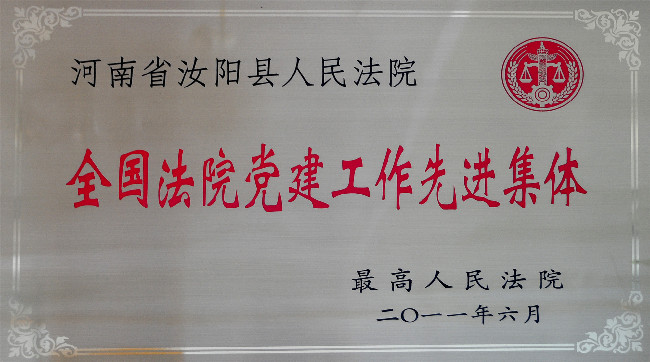 河南省汝阳县人民法院
全国法院党建工作先进集体
最高人民法院
二〇一一年六月